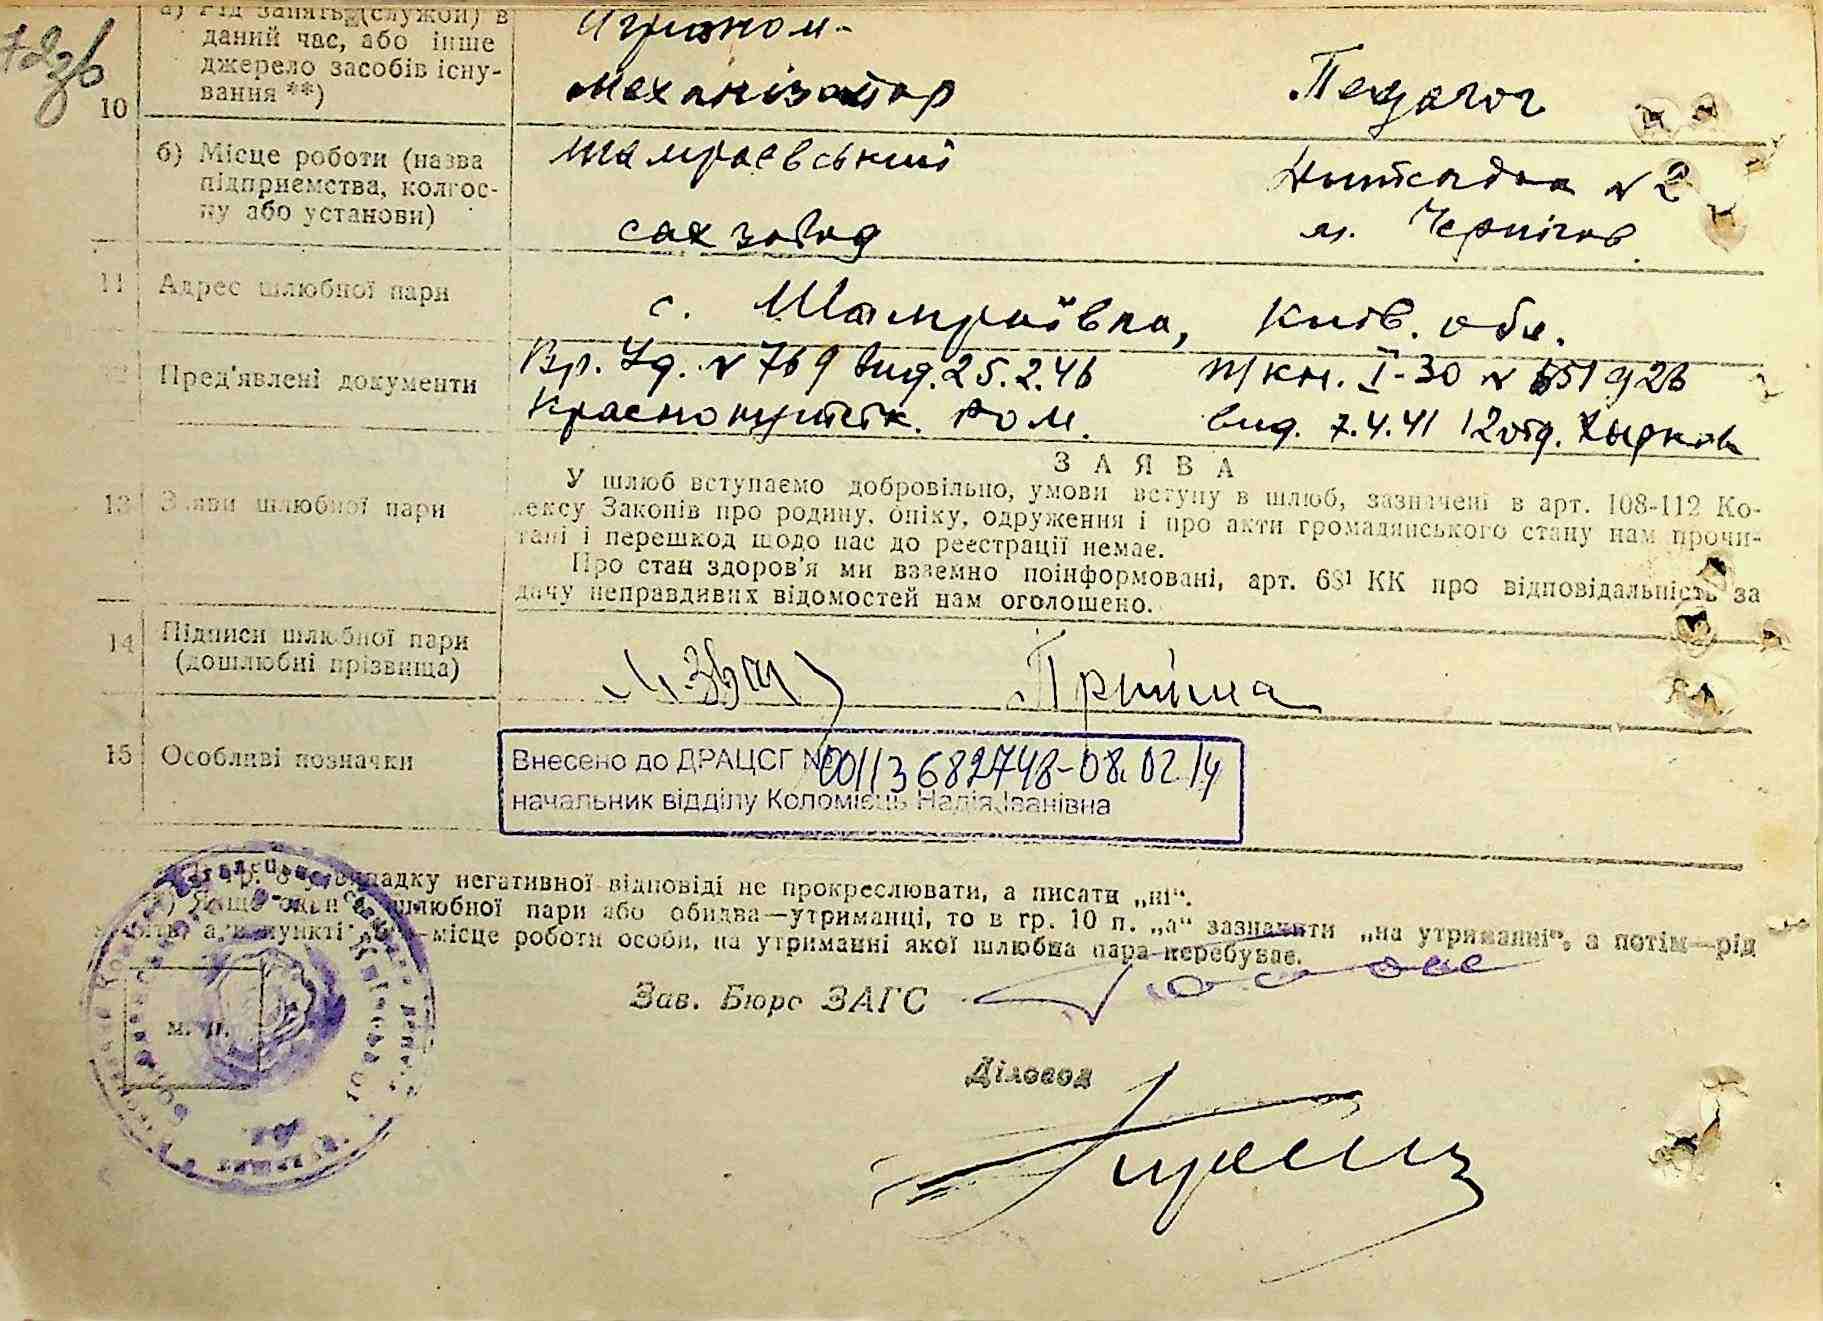 72зв
а) Рід занять (служби) в
даний час, або інше
джерело засобів існу-
вання **)
10
Агроном-
механізатор
Педагог
б) Місце роботи (назва
підприємства, колгос-
пу або установи)
Шамраєвський
сахзавод
Дитсадок N 2
м. Чернігов
11 Адрес шлюбної пари
с. Шамраївка, Київ. обл.
12 Пред'явлені документи
Вр. Уд. N 769 вид. 25.2.46
П/кн. I-30 N 551926
вид. 7.4.41 12 отд. Харков
13 Заяви шлюбної пари
ЗАЯВА
У шлюб вступаємо добровільно, умови вступу в шлюб, зазначені в арт. 108-112 Ко-
дексу Законів про родину, опіку, одруження і про акти громадянського стану нам прочи-
тані і перешкод щодо нас до реєстрації немає.
Про стан здоров'я ми взаємно поінформовані, арт. 68¹ КК про відповідальність за
дачу неправдивих відомостей нам оголошено.
14 Підписи шлюбної пари
(дошлюбні прізвища)
Прийма
15 Особливі позначки
Внесено до ДРАЦСГ № 00113682748-08.02.14
начальник відділу Коломієць Надія Іванівна
у випадку негативної відповіді не прокреслювати, а писати „ні".
Якщо один з шлюбної пари або обидва—утриманці, то в гр. 10 п. „а" зазначити „на утриманні", а потім—рід
занять, а в пункті —місце роботи особи, на утриманні якої шлюбна пара перебуває.
Зав. Бюро ЗАГС
м. п.
Діловод